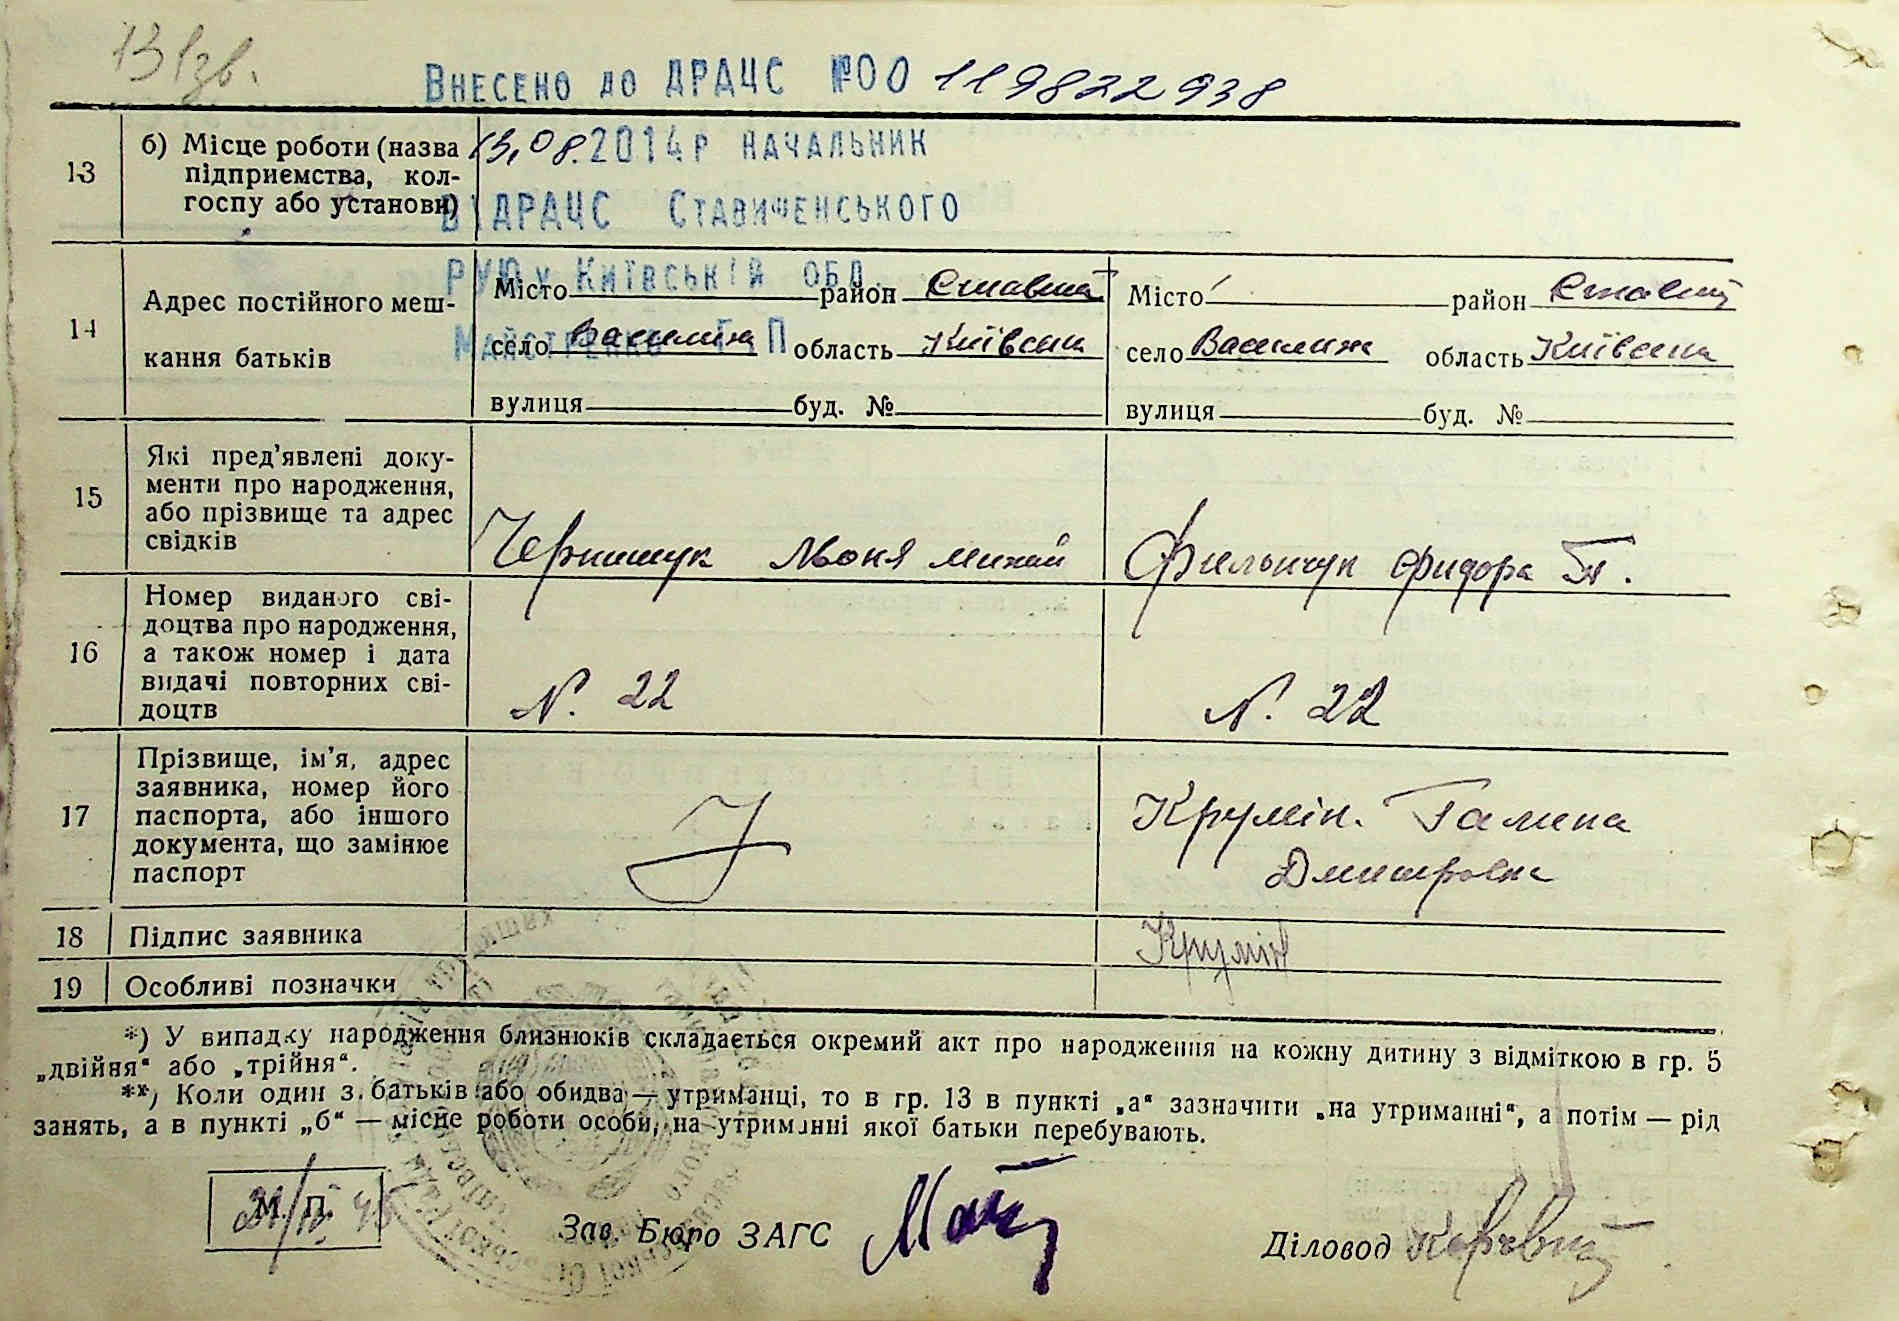 13 Ізв.
Внесено до ДРАЦС №00 119822938
13 б) Місце роботи (назва підприємства, колгоспу або установи)
13.08.2014р начальник
ВДРАЦС Ставищенського
РУЮ у Київській обл.
Майстренко Г П
14 Адрес постійного меш-
кання батьків
Місто район Ставищ
село Василиха область Київська
вулиця буд. №
Місто район Ставищ
село Василиха область Київська
вулиця буд. №
15 Які пред'явлені доку-
менти про народження,
або прізвище та адрес
свідків
Чернишук Мокія Михай
Фильчук Фидора Т.
16 Номер виданого сві-
доцтва про народження,
а також номер і дата
видачі повторних сві-
доцтв
N. 22
N. 22
17 Прізвище, ім'я, адрес
заявника, номер його
паспорта, або іншого
документа, що замінює
паспорт
Крумін. Галина
Дмитровна
18 Підпис заявника
Крумін
19 Особливі позначки
*) У випадку народження близнюків складається окремий акт про народження на кожну дитину з відміткою в гр. 5
„двійня“ або „трійня“.
**) Коли один з батьків або обидва — утриманці, то в гр. 13 в пункті „а“ зазначити „на утриманні“, а потім — рід
занять, а в пункті „б“ — місце роботи особи, на утриманні якої батьки перебувають.
М. П.
Зав. Бюро ЗАГС
Діловод